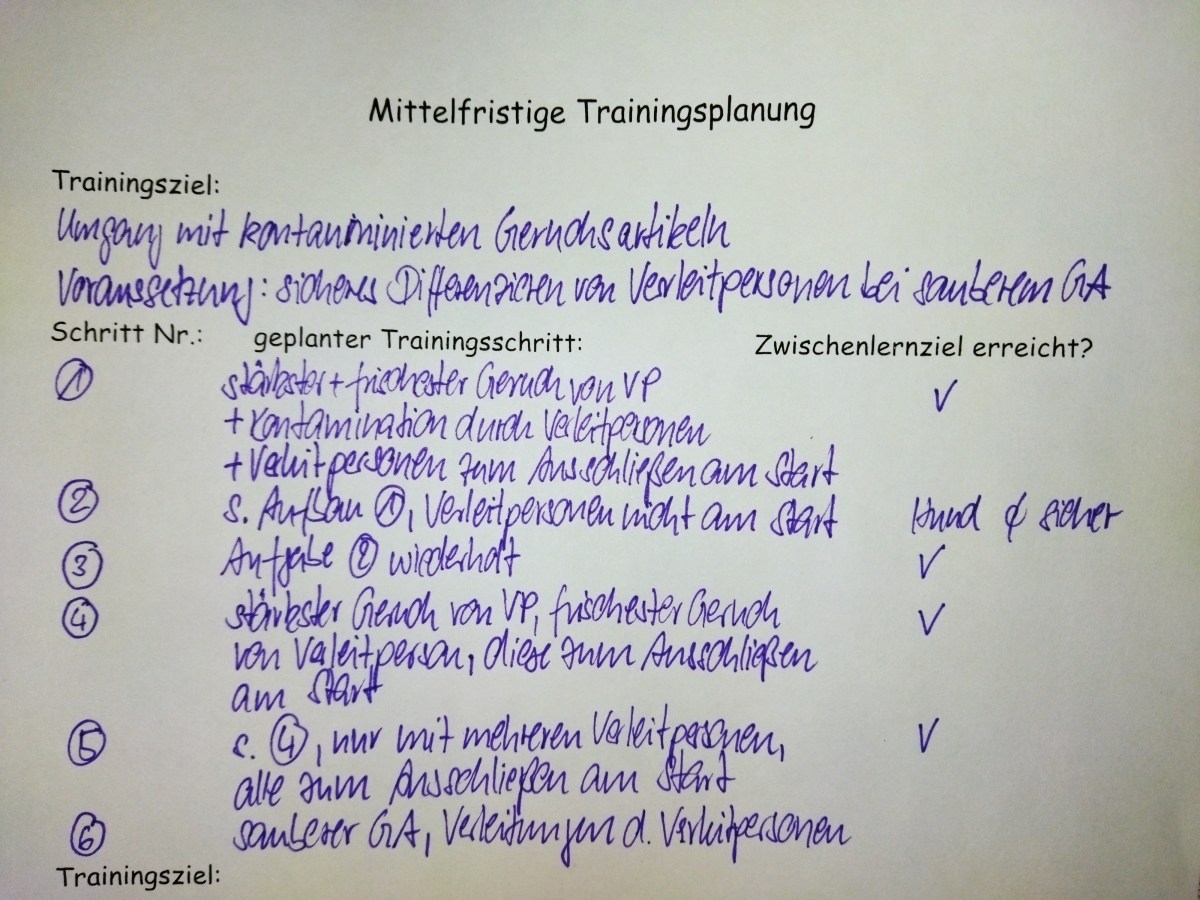 Mittelfristige Trainingsplanung
Trainingsziel:
Umgang mit kontaminierten Geruchsartikeln
Voraussetzung: sicheres Differenzieren von Verleitpersonen bei sauberem GA
Schritt Nr.: geplanter Trainingsschritt: Zwischenlernziel erreicht?
① stärkster + frischester Geruch von VP ✓
+ Kontamination durch Verleitpersonen
+ Verleitpersonen zum Ausschließen am Start
② s. Aufbau ①, Verleitpersonen nicht am Start Hund ¢ sicher
③ Aufgabe ② wiederholt ✓
④ stärkster Geruch von VP, frischester Geruch ✓
von Verleitperson, diese zum Ausschließen
am Start
⑤ s. ④, nur mit mehreren Verleitpersonen, ✓
alle zum Ausschließen am Start
⑥ sauberer GA, Verleitungen d. Verleitpersonen
Trainingsziel: